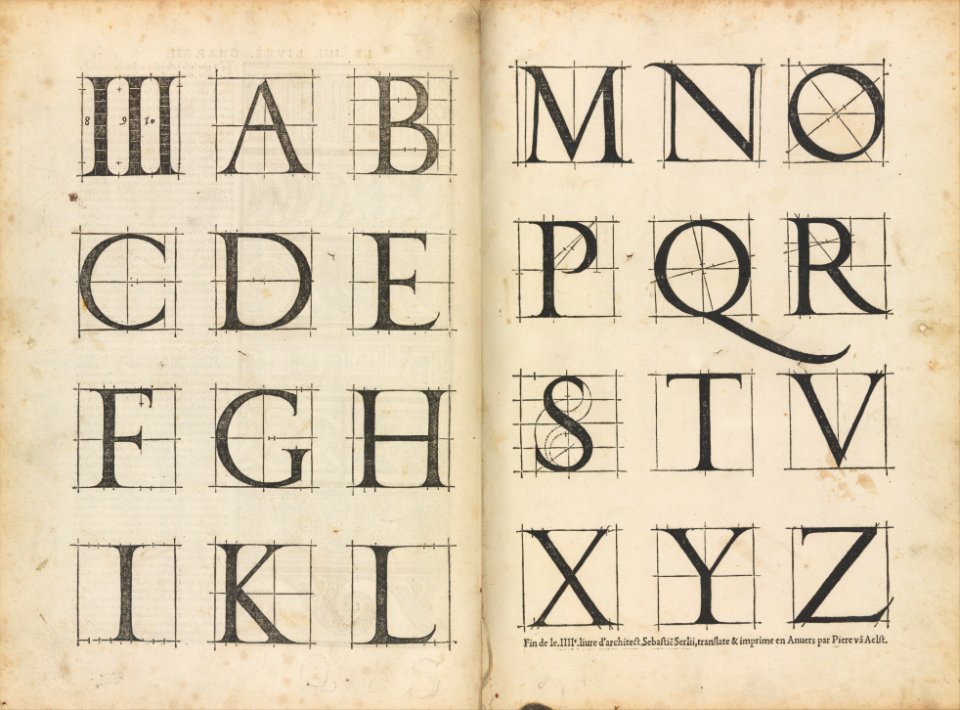 III A B
8 6 10
C D E
F G H
I K L
M N O
P Q R
S T V
X Y Z
Fin de le.IIIIe.liure d'architect.Sebastiē Serlii,translate & imprime en Anuers par Piere vā Aelst.